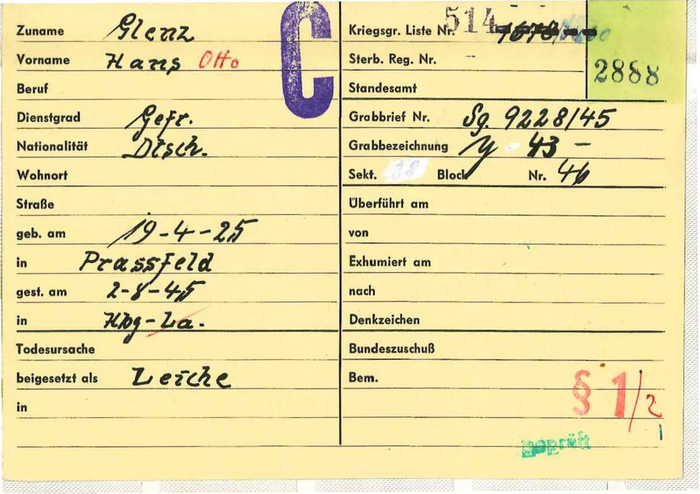 C
Zuname Glenz
Vorname Hans Otto
Beruf
Dienstgrad Gefr.
Nationalität Dtsch.
Wohnort
Straße
geb. am 19-4-25
in Prassfeld
gest. am 2-8-45
in Hbg-La.
Todesursache
beigesetzt als Leiche
in
Kriegsgr. Liste Nr. 514
Sterb. Reg. Nr.
2888
Standesamt
Grabbrief Nr. Sg. 9228/45
Grabbezeichnung y 43 -
Sekt. 38 Block Nr. 46
Überführt am
von
Exhumiert am
nach
Denkzeichen
Bundeszuschuß
Bem.
§ 1/2
geprüft